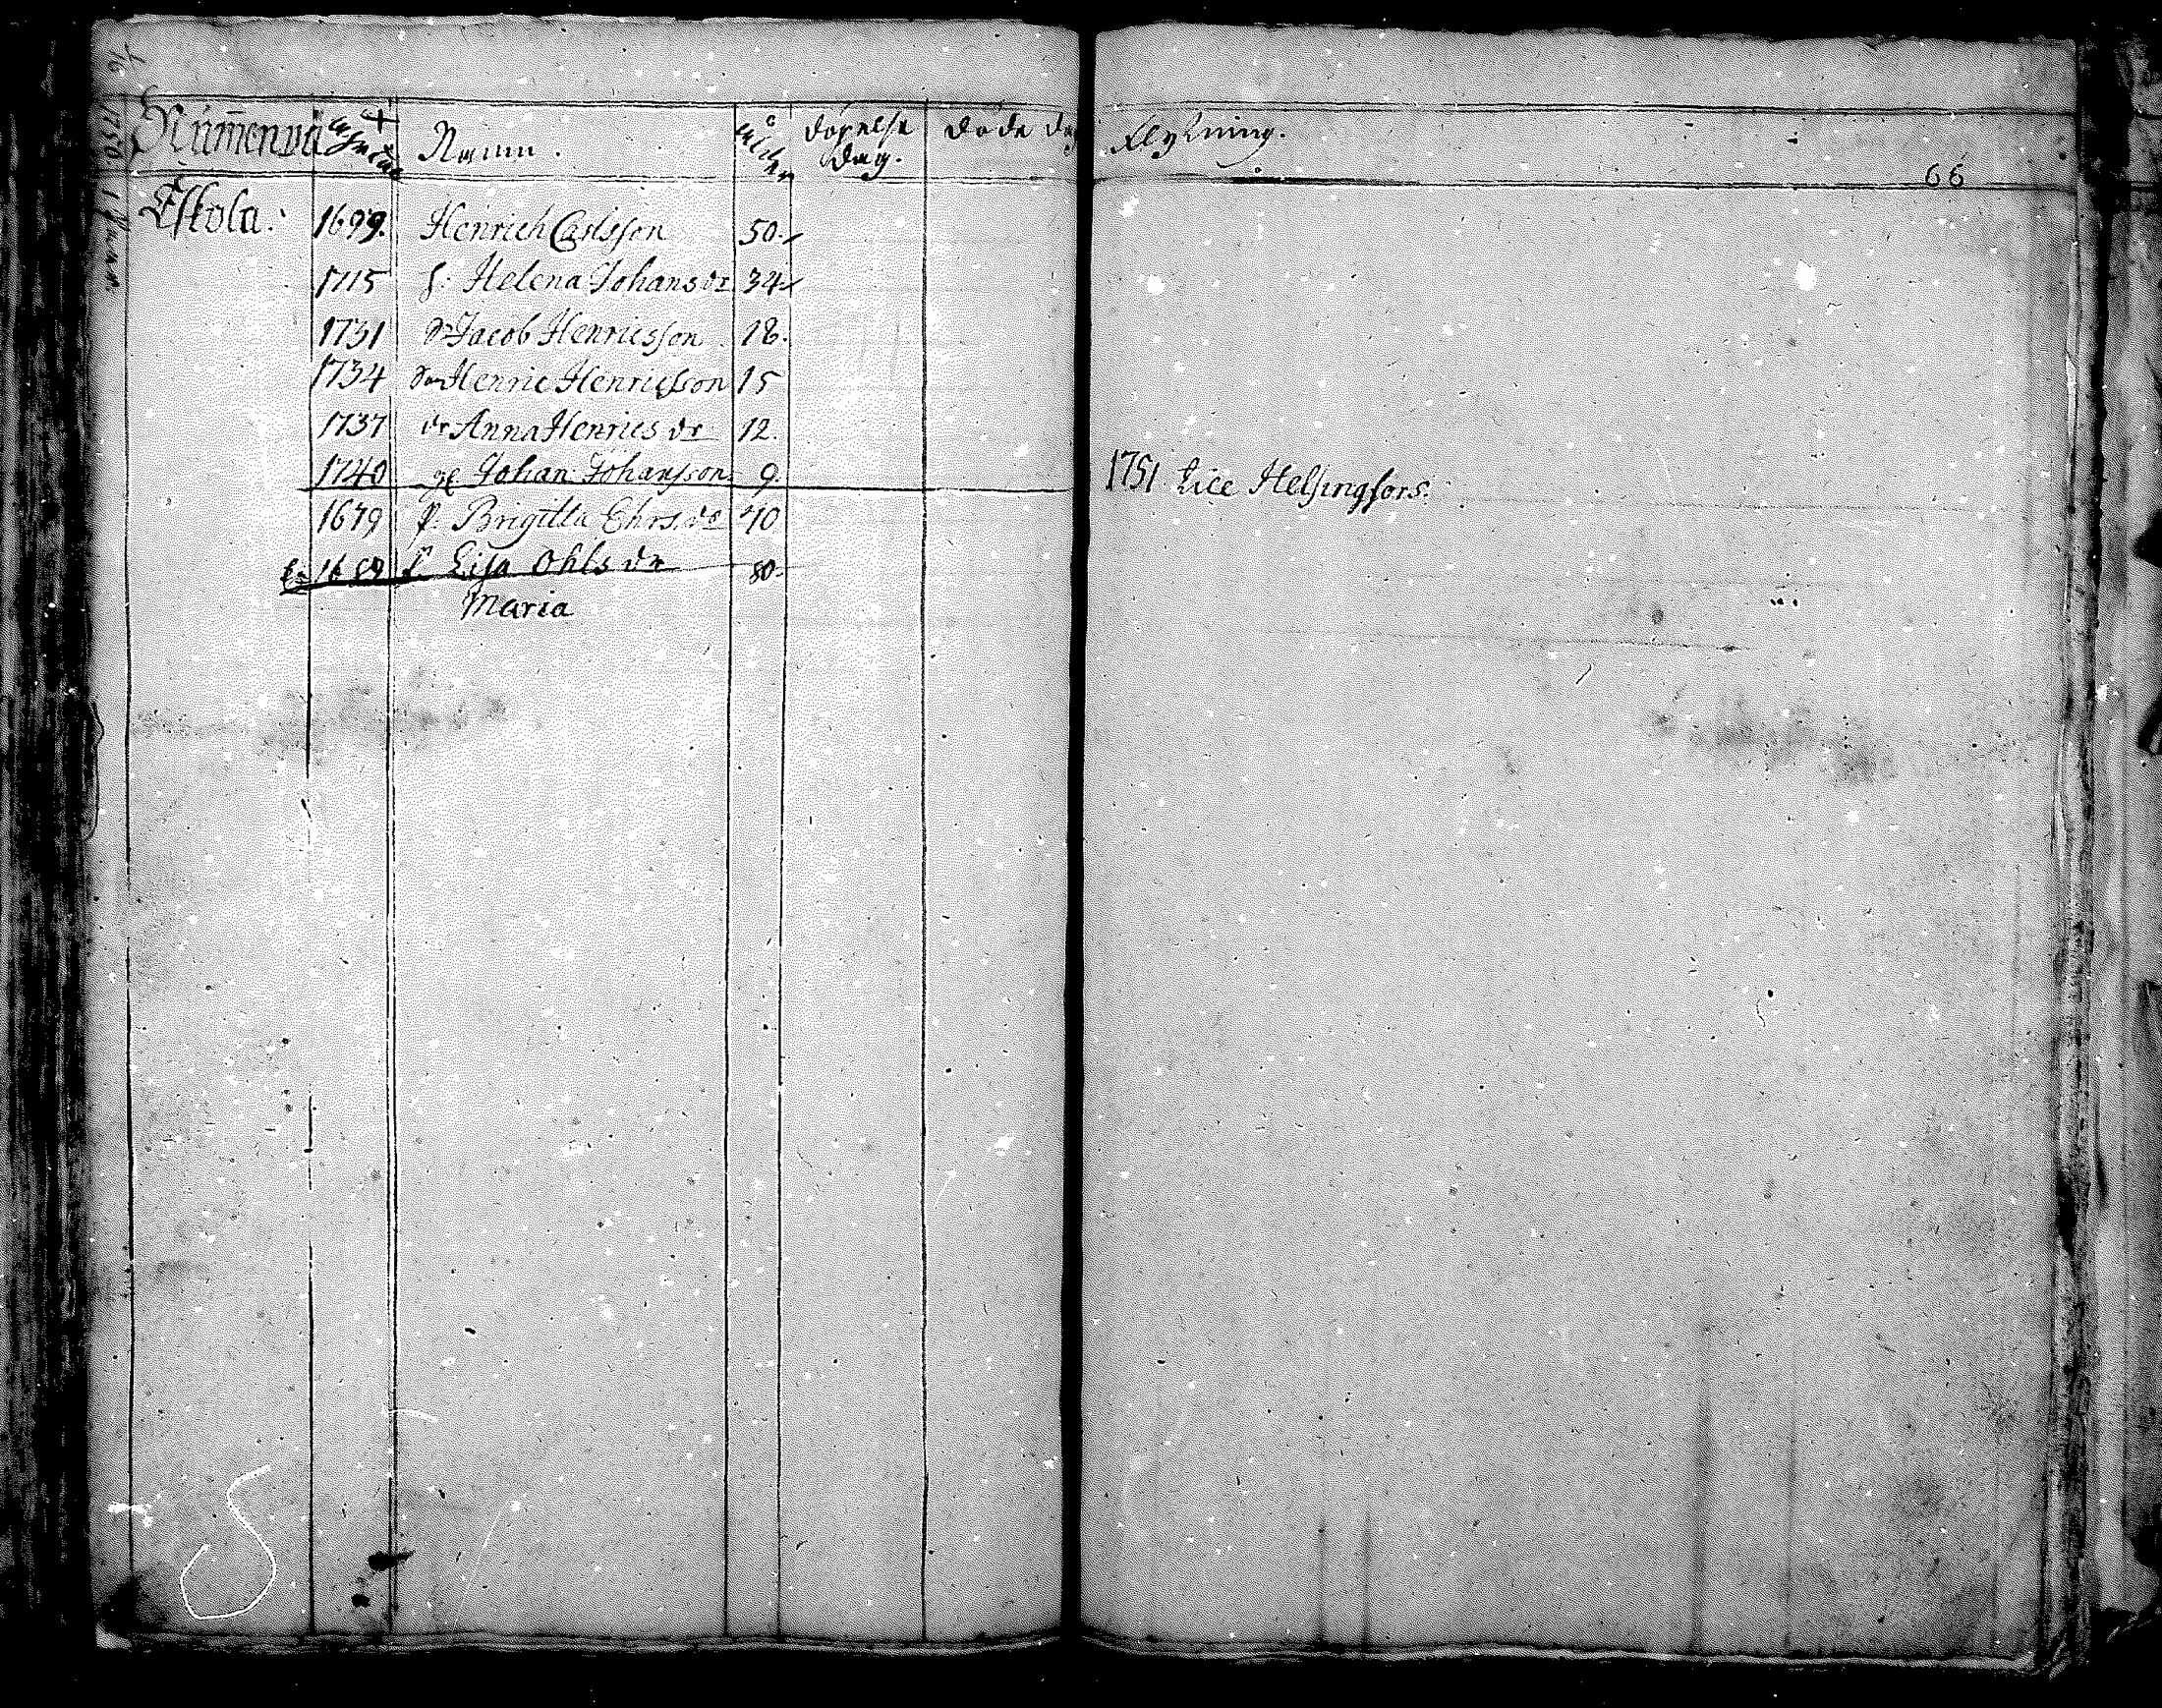 Nummenpä Namn. Döpelse dag. Döde dag Flyttning.
66
Eskola: 1699. Henrich Carlsson 50.
1715 h: Helena Johans dr 34
1731 Sn Jacob Henricsson 18.
1734 Son Henric Henricsson 15
1737 dr Anna Henrics dr 12.
1740 Johan Johansson 9. 1751 Helsingfors.
1679 p. Brigitta Ehrs. dr 70
Lisa Ohls dr 80.
Maria